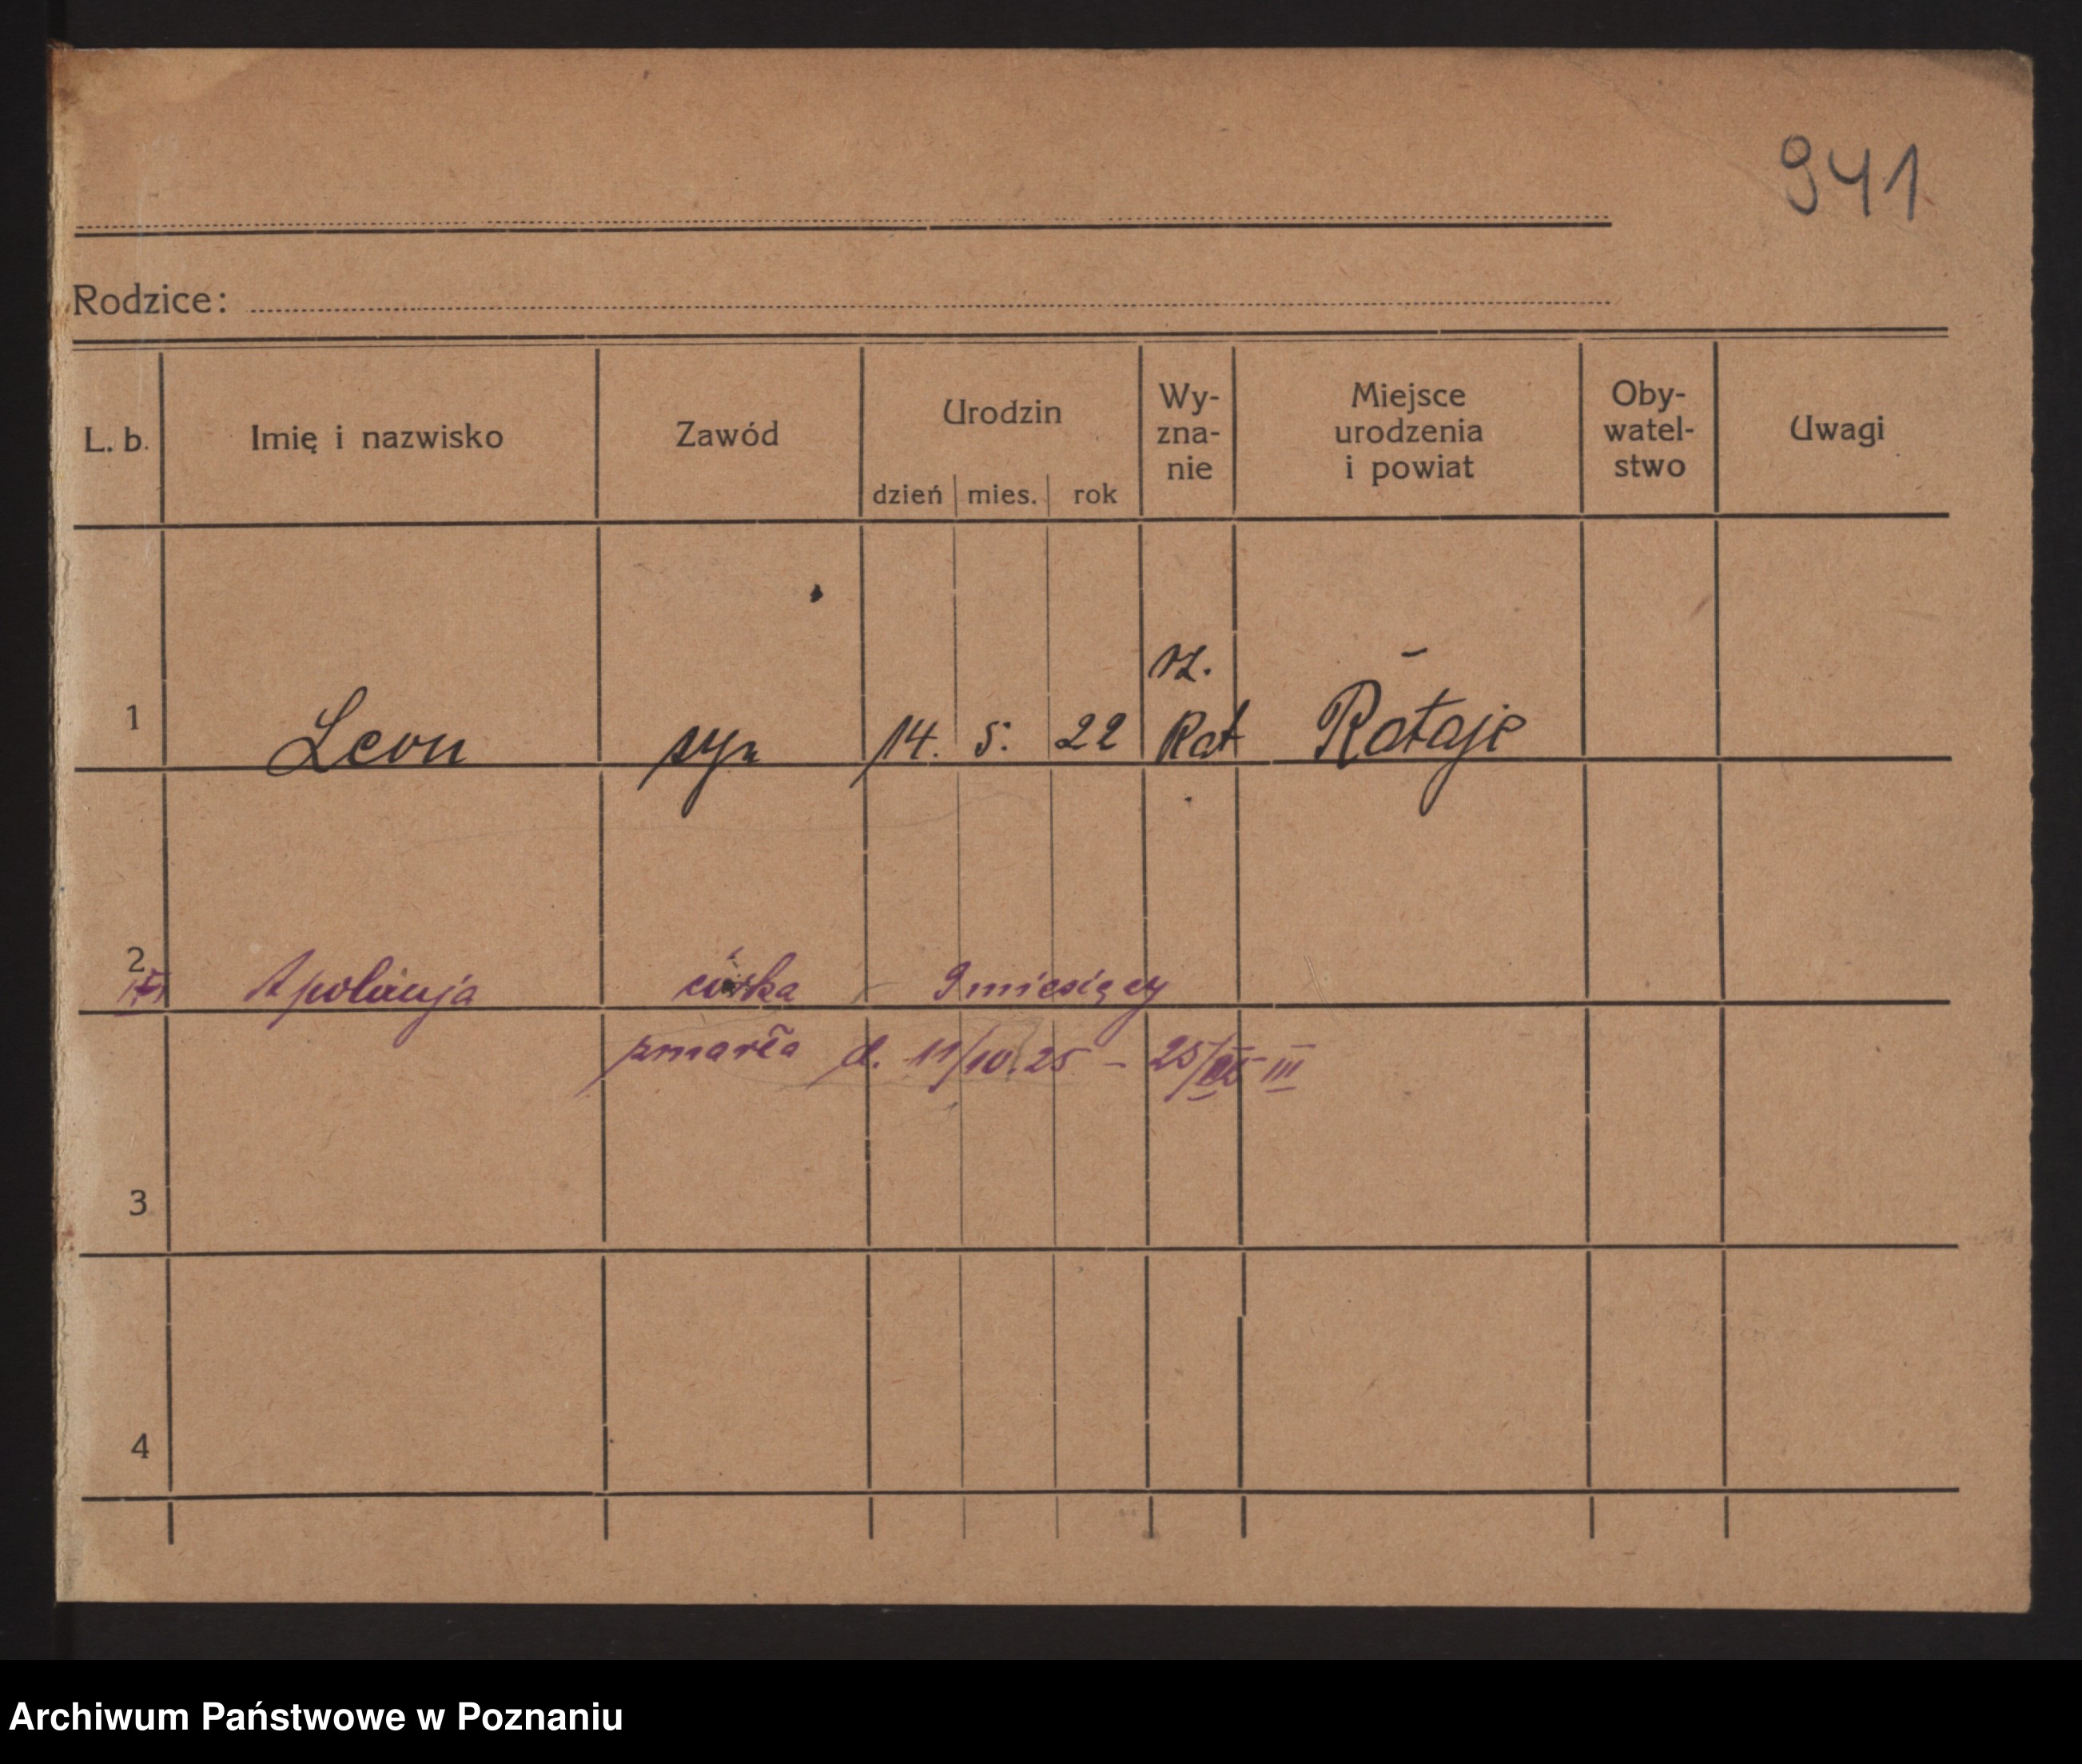 941
Rodzice:
L. b. Imię i nazwisko Zawód Urodzin Wy-zna-nie Miejsce urodzenia i powiat Oby-watel-stwo Uwagi
dzień mies. rok
rz.
1 Leon syn 14. 5. 22 Kat Rataje
2 Apolonja córka 9 miesięcy
zmarła d. 11/10.25 – 25/ III
3
4
Archiwum Państwowe w Poznaniu